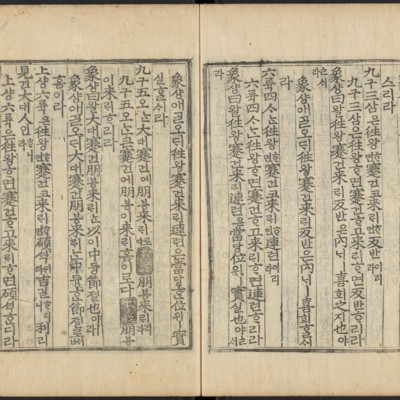 스리라
九구三삼은往왕ᄒᆞ면蹇건코來ᄅᆡ면反반이리라
九구三삼은往왕ᄒᆞ면蹇건ᄒᆞ고來ᄅᆡᄒᆞ면反반ᄒᆞ리라
象샹曰왈往왕蹇건來ᄅᆡ反반은內ᄂᆡ喜희之지也야라
象샹애ᄀᆞᆯ오ᄃᆡ往왕蹇건來ᄅᆡ反반은內ᄂᆡ喜희ᄒᆞᆯᄉᆡ라
六륙四ᄉᆞᄂᆞᆫ往왕ᄒᆞ면蹇건코來ᄅᆡ면連련이리라
六륙四ᄉᆞᄂᆞᆫ往왕ᄒᆞ면蹇건ᄒᆞ고來ᄅᆡᄒᆞ면連련ᄒᆞ리라
象샹曰왈往왕蹇건來ᄅᆡ連련은當당位위ㅣ實실也야ㅣ라
象샹애ᄀᆞᆯ오ᄃᆡ往왕蹇건來ᄅᆡ連련은當당ᄒᆞᆫ位위ㅣ實
실ᄒᆞᆯᄉᆡ라
九구五오ᄂᆞᆫ大대蹇건애朋붕來ᄅᆡ
九구五오ᄂᆞᆫ큰蹇건애朋붕이來ᄅᆡᄒᆞ리로다
朋붕이來ᄅᆡᄒᆞ리라
象샹曰왈大대蹇건朋붕來ᄅᆡᄂᆞᆫ以이中듕節졀也야ㅣ라
象샹애ᄀᆞᆯ오ᄃᆡ大대蹇건朋붕來ᄅᆡᄂᆞᆫ中듕ᄒᆞᆫ節졀로ᄡᅦ
上샹六륙은往왕ᄒᆞ면蹇건코來ᄅᆡ면碩셕이라吉길ᄒᆞ리니利리
見견大대人인ᄒᆞ니라
上샹六륙은往왕ᄒᆞ면蹇건ᄒᆞ고來ᄅᆡᄒᆞ면碩셕ᄒᆞ디라